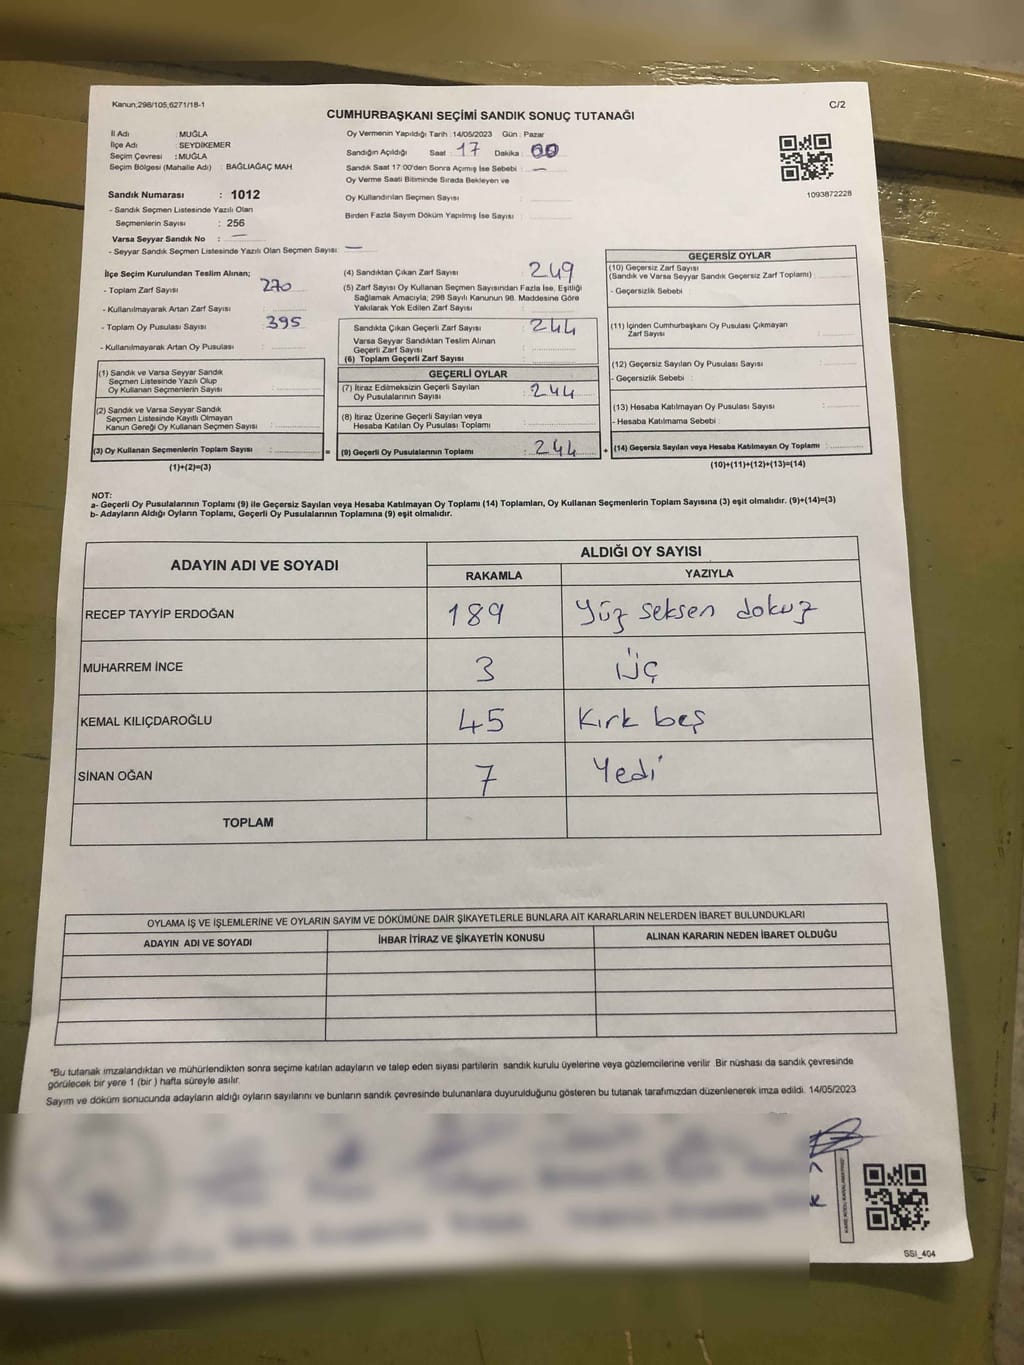 Kanun;298/105;6271/18-1
C/2
CUMHURBAŞKANI SEÇİMİ SANDIK SONUÇ TUTANAĞI
İl Adı : MUĞLA
İlçe Adı : SEYDİKEMER
Seçim Çevresi : MUĞLA
Seçim Bölgesi (Mahalle Adı) : BAĞLIAĞAÇ MAH
Sandık Numarası : 1012
- Sandık Seçmen Listesinde Yazılı Olan
Seçmenlerin Sayısı : 256
Varsa Seyyar Sandık No : —
- Seyyar Sandık Seçmen Listesinde Yazılı Olan Seçmen Sayısı: —
Oy Vermenin Yapıldığı Tarih : 14/05/2023 Gün : Pazar
Sandığın Açıldığı Saat : 17 Dakika : 00
Sandık Saat 17:00'den Sonra Açımış İse Sebebi : —
Oy Verme Saati Bitiminde Sırada Bekleyen ve
Oy Kullandırılan Seçmen Sayısı :
Birden Fazla Sayım Döküm Yapılmış İse Sayısı :
1093872228
İlçe Seçim Kurulundan Teslim Alınan;
- Toplam Zarf Sayısı : 270
- Kullanılmayarak Artan Zarf Sayısı :
- Toplam Oy Pusulası Sayısı : 395
- Kullanılmayarak Artan Oy Pusulası :
(1) Sandık ve Varsa Seyyar Sandık
Seçmen Listesinde Yazılı Olup
Oy Kullanan Seçmenlerin Sayısı :
(2) Sandık ve Varsa Seyyar Sandık
Seçmen Listesinde Kayıtlı Olmayan
Kanun Gereği Oy Kullanan Seçmen Sayısı :
(3) Oy Kullanan Seçmenlerin Toplam Sayısı : =
(1)+(2)=(3)
(4) Sandıktan Çıkan Zarf Sayısı : 249
(5) Zarf Sayısı Oy Kullanan Seçmen Sayısından Fazla İse, Eşitliği
Sağlamak Amacıyla; 298 Sayılı Kanunun 98. Maddesine Göre
Yakılarak Yok Edilen Zarf Sayısı :
Sandıkta Çıkan Geçerli Zarf Sayısı : 244
Varsa Seyyar Sandıktan Teslim Alınan
Geçerli Zarf Sayısı :
(6) Toplam Geçerli Zarf Sayısı :
GEÇERLİ OYLAR
(7) İtiraz Edilmeksizin Geçerli Sayılan
Oy Pusulalarının Sayısı : 244
(8) İtiraz Üzerine Geçerli Sayılan veya
Hesaba Katılan Oy Pusulası Toplamı :
(9) Geçerli Oy Pusulalarının Toplamı : 244 +
GEÇERSİZ OYLAR
(10) Geçersiz Zarf Sayısı
(Sandık ve Varsa Seyyar Sandık Geçersiz Zarf Toplamı) :
- Geçersizlik Sebebi :
(11) İçinden Cumhurbaşkanı Oy Pusulası Çıkmayan
Zarf Sayısı :
(12) Geçersiz Sayılan Oy Pusulası Sayısı :
- Geçersizlik Sebebi :
(13) Hesaba Katılmayan Oy Pusulası Sayısı :
- Hesaba Katılmama Sebebi :
(14) Geçersiz Sayılan veya Hesaba Katılmayan Oy Toplamı :
(10)+(11)+(12)+(13)=(14)
NOT:
a- Geçerli Oy Pusulalarının Toplamı (9) ile Geçersiz Sayılan veya Hesaba Katılmayan Oy Toplamı (14) Toplamları, Oy Kullanan Seçmenlerin Toplam Sayısına (3) eşit olmalıdır. (9)+(14)=(3)
b- Adayların Aldığı Oyların Toplamı, Geçerli Oy Pusulalarının Toplamına (9) eşit olmalıdır.
ADAYIN ADI VE SOYADI
ALDIĞI OY SAYISI
RAKAMLA YAZIYLA
RECEP TAYYİP ERDOĞAN 189 Yüz seksen dokuz
MUHARREM İNCE 3 Üç
KEMAL KILIÇDAROĞLU 45 Kırk beş
SİNAN OĞAN 7 Yedi
TOPLAM
OYLAMA İŞ VE İŞLEMLERİNE VE OYLARIN SAYIM VE DÖKÜMÜNE DAİR ŞİKAYETLERLE BUNLARA AİT KARARLARIN NELERDEN İBARET BULUNDUKLARI
ADAYIN ADI VE SOYADI İHBAR İTİRAZ VE ŞİKAYETİN KONUSU ALINAN KARARIN NEDEN İBARET OLDUĞU
*Bu tutanak imzalandıktan ve mühürlendikten sonra seçime katılan adayların ve talep eden siyasi partilerin sandık kurulu üyelerine veya gözlemcilerine verilir. Bir nüshası da sandık çevresinde
görülecek bir yere 1 (bir ) hafta süreyle asılır.
Sayım ve döküm sonucunda adayların aldığı oyların sayılarını ve bunların sandık çevresinde bulunanlara duyurulduğunu gösteren bu tutanak tarafımızdan düzenlenerek imza edildi. 14/05/2023
SSI_404